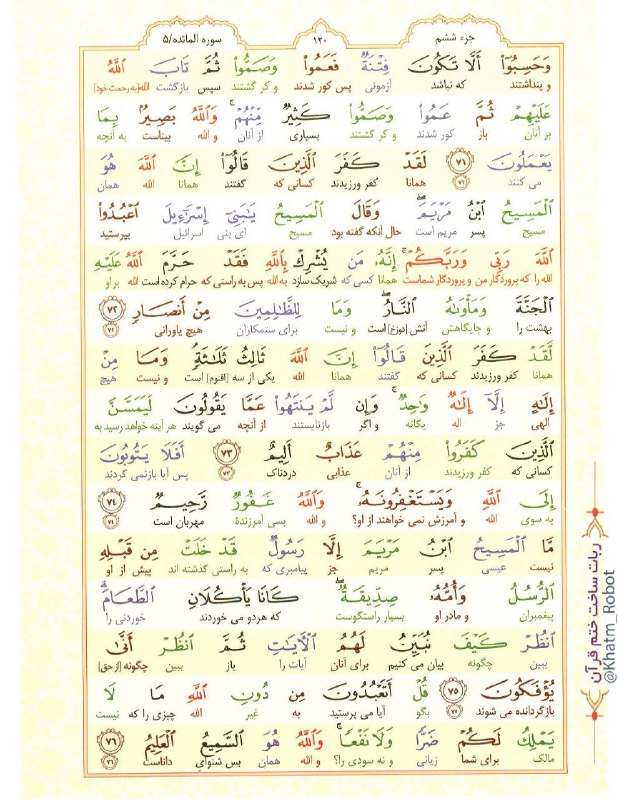 جزء ششم
١٢٠
سوره المائده/۵
وَحَسِبُوٓا۟ أَلَّا تَكُونَ فِتْنَةٌ فَعَمُوا۟ وَصَمُّوا۟ ثُمَّ تَابَ ٱللَّهُ
و پنداشتند که نباشد آزمونی پس کور شدند و کر گشتند سپس بازگشت الله[به رحمت خود]
عَلَيْهِمْ ثُمَّ عَمُوا۟ وَصَمُّوا۟ كَثِيرٌ مِّنْهُمْ ۚ وَٱللَّهُ بَصِيرٌۢ بِمَا
بر آنان باز کور شدند و کر گشتند بسیاری از آنان و الله بیناست به آنچه
يَعْمَلُونَ ٧١ لَقَدْ كَفَرَ ٱلَّذِينَ قَالُوٓا۟ إِنَّ ٱللَّهَ هُوَ
می کنند ٧١ همانا کفر ورزیدند کسانی که گفتند همانا الله همان
ٱلْمَسِيحُ ٱبْنُ مَرْيَمَ ۖ وَقَالَ ٱلْمَسِيحُ يَـٰبَنِىٓ إِسْرَٰٓءِيلَ ٱعْبُدُوا۟
مسیح پسر مریم است حال آنکه گفته بود مسیح ای بنی اسرائیل بپرستید
ٱللَّهَ رَبِّى وَرَبَّكُمْ ۖ إِنَّهُۥ مَن يُشْرِكْ بِٱللَّهِ فَقَدْ حَرَّمَ ٱللَّهُ عَلَيْهِ
الله را که پروردگار من و پروردگار شماست همانا کسی که شریک سازد به الله پس به راستی که حرام کرده است الله بر او
ٱلْجَنَّةَ وَمَأْوَىٰهُ ٱلنَّارُ ۖ وَمَا لِلظَّـٰلِمِينَ مِنْ أَنصَارٍ ٧٢
بهشت را و جایگاهش آتش [دوزخ] است و نیست برای ستمکاران هیچ یاورانی ٧٢
لَّقَدْ كَفَرَ ٱلَّذِينَ قَالُوٓا۟ إِنَّ ٱللَّهَ ثَالِثُ ثَلَـٰثَةٍ ۘ وَمَا مِنْ
همانا کفر ورزیدند کسانی که گفتند همانا الله یکی از سه [اقنوم] است و نیست هیچ
إِلَـٰهٍ إِلَّآ إِلَـٰهٌ وَٰحِدٌ ۚ وَإِن لَّمْ يَنتَهُوا۟ عَمَّا يَقُولُونَ لَيَمَسَّنَّ
الهی جز اله یگانه و اگر بازنایستند از آنچه می گویند هر آینه خواهد رسید به
ٱلَّذِينَ كَفَرُوا۟ مِنْهُمْ عَذَابٌ أَلِيمٌ ٧٣ أَفَلَا يَتُوبُونَ
کسانی که کفر ورزیدند از آنان عذابی دردناک ٧٣ پس آیا بازنمی گردند
إِلَى ٱللَّهِ وَيَسْتَغْفِرُونَهُۥ ۚ وَٱللَّهُ غَفُورٌ رَّحِيمٌ ٧٤
به سوی الله و آمرزش نمی خواهند از او؟ و الله بسی آمرزندهٔ مهربان است ٧٤
مَّا ٱلْمَسِيحُ ٱبْنُ مَرْيَمَ إِلَّا رَسُولٌ قَدْ خَلَتْ مِن قَبْلِهِ
نیست عیسی پسر مریم جز پیامبری که به راستی گذشته اند پیش از او
ٱلرُّسُلُ وَأُمُّهُۥ صِدِّيقَةٌ ۖ كَانَا يَأْكُلَانِ ٱلطَّعَامَ ۗ
پیغمبران و مادر او بسیار راستگوست که هردو می خوردند خوردنی را
ٱنظُرْ كَيْفَ نُبَيِّنُ لَهُمُ ٱلْـَٔايَـٰتِ ثُمَّ ٱنظُرْ أَنَّىٰ
ببین چگونه بیان می کنیم برای آنان آیات را باز ببین چگونه [از حق]
يُؤْفَكُونَ ٧٥ قُلْ أَتَعْبُدُونَ مِن دُونِ ٱللَّهِ مَا لَا
بازگردانده می شوند ٧٥ بگو آیا می پرستید به غیر الله چیزی را که نیست
يَمْلِكُ لَكُمْ ضَرًّا وَلَا نَفْعًا ۚ وَٱللَّهُ هُوَ ٱلسَّمِيعُ ٱلْعَلِيمُ ٧٦
مالک برای شما زیانی و نه سودی را؟ و الله همان بس شنوای داناست ٧٦
ربات ساخت ختم قرآن
@Khatm_Robot